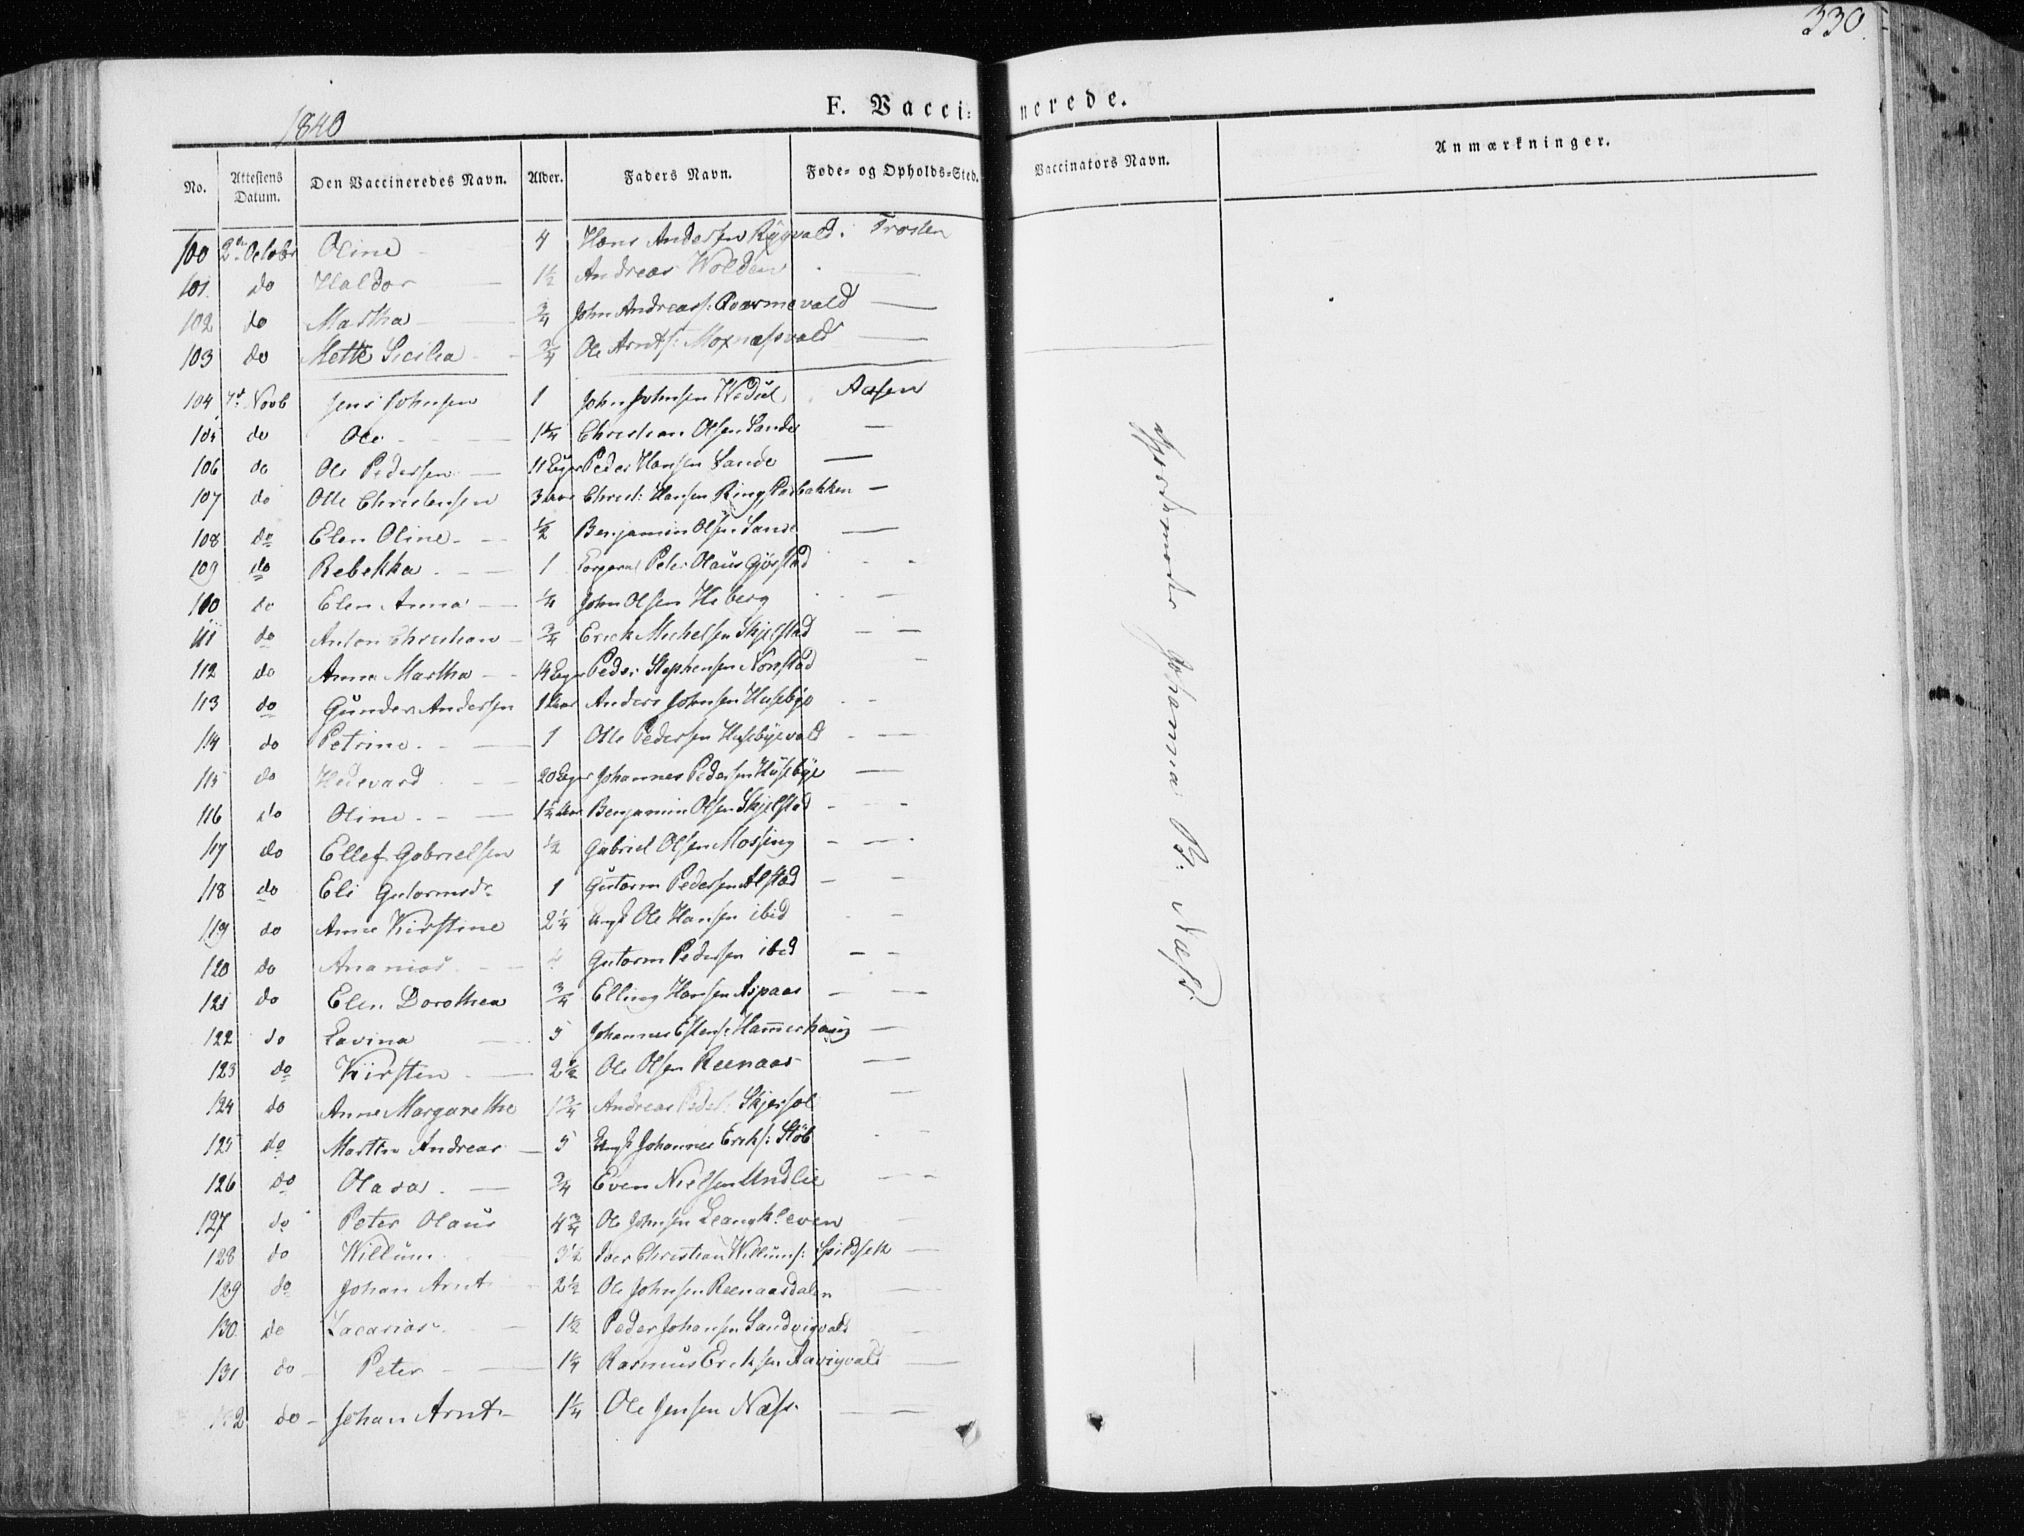 330.
1840
F. Vaccinerede.
No. Attestens Datum. Den Vaccineredes Navn. Alder. Faders Navn. Føde- og Opholds-Sted. Vaccinators Navn. Anmærkninger.
100 2den October Oline 4 Hans Andersen Trosten
101 do Haldor 1½ Andreas Wolden —
102 do Martha ¾ John Andreass: —
103 do Mette Sicilia ¾ Ole Arnts: Moxnæsvald —
104 7d Novb Jens Johnsen 1 John Johnsen Wedul Aasen
105 do Ole 1¼ Christian Olsen Sande —
106 do Ole Pedersen 11 Uger Peder Hansen Sande —
107 do Olle Christensen 3 Aar Christ: Hansen Ringstadbakken —
108 do Elen Oline ½ Benjamin Olsen Sande —
109 do Rebekka 1 Peter Olaus Gjørstad
110 do Elen Anna ¼ John Olsen Hoberg
111 do Anton Christian ¾ Erick Michelsen Skjelstad — —
112 do Anne Martha 14 Uger Peder Stephensen Norstad
113 do Gunder Andersen 1 Aar Anders Johnsen Husebye
114 do Petrine 1 Olle Pedersen Husebyevald —
115 do Hedevard 20 Uger Johannes Pedersen Husebye —
116 do Oline 1¼ Aar Benjamin Olsen Skjelstad
117 do Ellef Gabrielsen ½ Gabriel Olsen Mossing
118 do Eli Gutormsdr 1 Gutorm Pedersen Alstad
119 do Anne Kirstine 2¼ Ungk Ole Hansen ibid
120 do Ananias Gutorm Pedersen ibid — —
121 do Elen Dorothea ¾ Elling Hansen Aspaas — —
122 do Lavina 5 Johannes Estens: Hammerhaug —
123 do Kirsten 2½ Ole Olsen Reenaas —
124 do Anne Margarethe 1¾ Andreas Peders: —
125 do Morten Andreas 5 Ungk Johannes Eriks: Støb
126 do Olava ¾ Even Nielsen Undlie — —
127 do Peter Olaus 4¾ Ole Johnsen Leangkleven —
128 do Willum 3½ Iver Christian Willums: —
129 do Johan Arnt 2½ Ole Johnsen Reenaasdalen —
130 do Zacarias 1½ Peder Johansen Sandvigvald —
131 do Peter 1¼ Rasmus Ericksen Aavigvald —
132 do Johan Arnt 1¼ Ole Jensen Næss — —
Gjordemoder Johanna P: Næss.